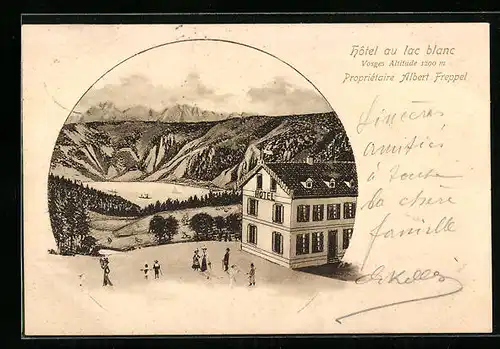 Hôtel au lac blanc
Vosges Altitude 1200 m
Propriétaire Albert Freppel
Sincères
amitiés
à toute
la chère
famille
HOTEL